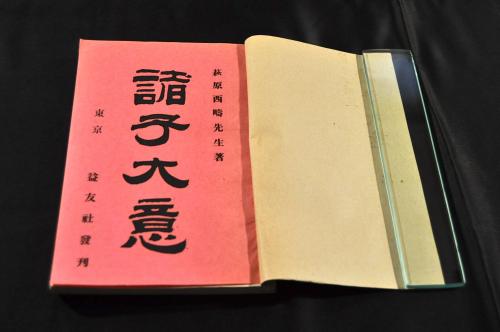 萩原西疇先生著
諸子大意
東京 益友社發刊